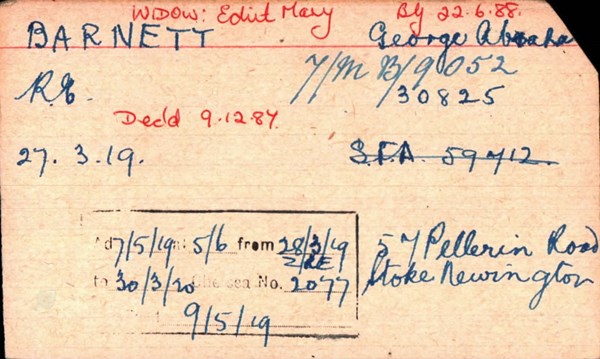 WIDOW: Edith Mary By 22.6.88.
BARNETT George Abraha
7/M B/9052
R.E. /30825
Dec'd 9.12.87.
27.3.19. S.F.A. 59712.
7/5/19 5/6 from 28/3/19 57 Pellerin Road
2/RE Stoke Newington
to 30/3/20 Chelsea No. 2077
9/5/19